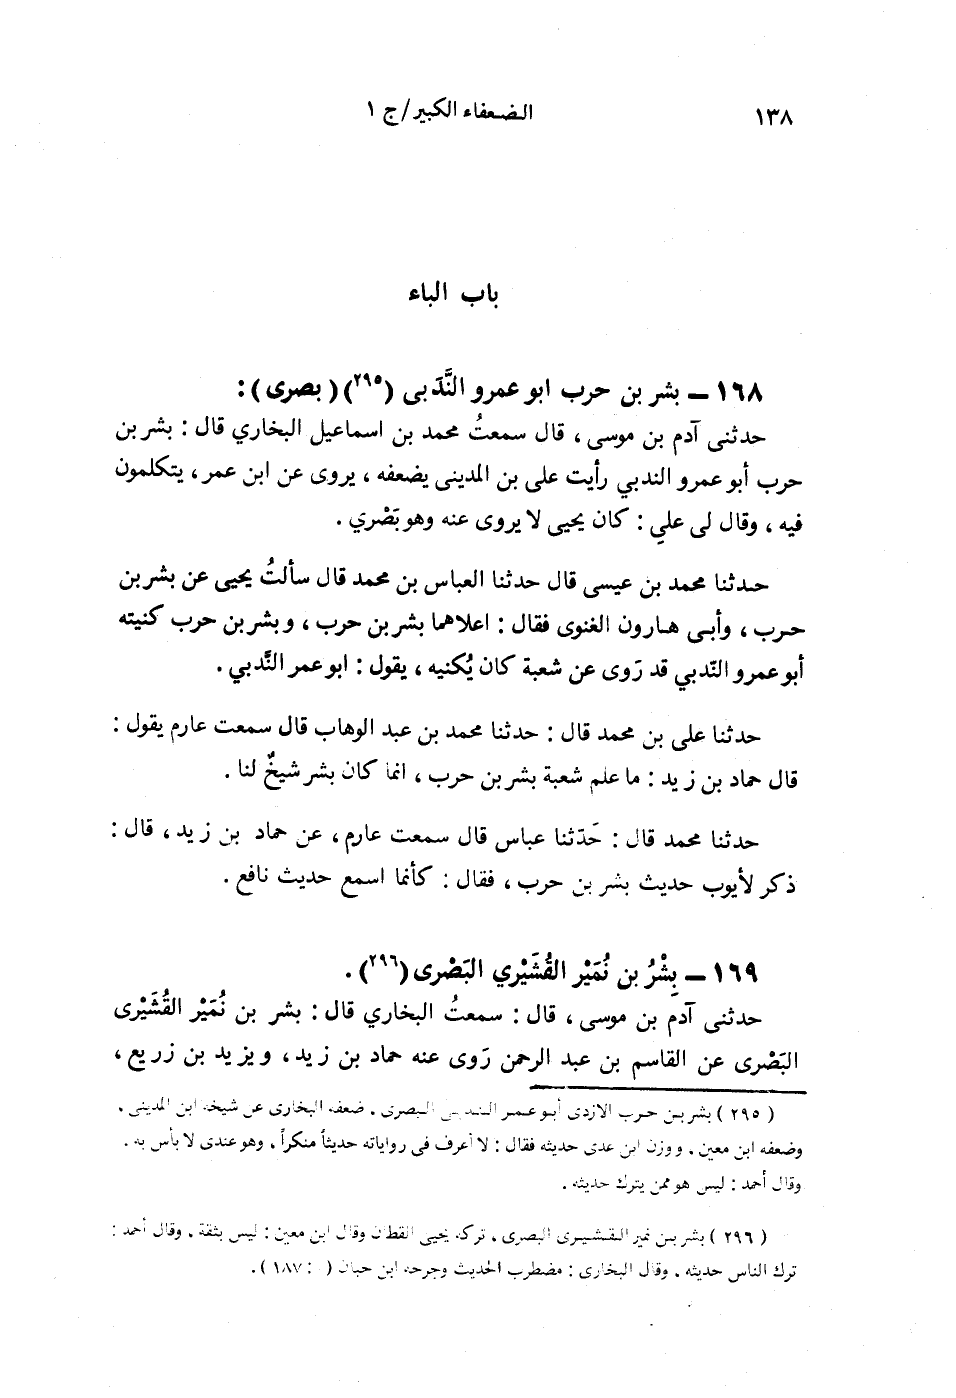 ١٣٨
الضعفاء الكبير/ج ١
باب الباء
١٦٨ ــ بشر بن حرب ابو عمرو النَّدَبى (٢٩٥)( بصرى ) :
حدثنى آدم بن موسى ، قال سمعتُ محمد بن اسماعيل البخاري قال : بشر بن
حرب أبو عمرو الندبي رأيت على بن المدينى يضعفه ، يروى عن ابن عمر ، يتكلمون
فيه ، وقال لى علي : كان يحيى لا يروى عنه وهو بَصْري .
حدثنا محمد بن عيسى قال حدثنا العباس بن محمد قال سألتُ يحيى عن بشر بن
حرب ، وأبى هارون الغنوى فقال : اعلاهما بشر بن حرب ، وبشر بن حرب كنيته
أبو عمرو النّدبي قد رَوى عن شعبة كان يُكنيه ، يقول : ابو عمر النَّدبي .
حدثنا على بن محمد قال : حدثنا محمد بن عبد الوهاب قال سمعت عارم يقول :
قال حماد بن زيد : ما علم شعبة بشر بن حرب ، انما كان بشر شيخٌ لنا .
حدثنا محمد قال : حَدّثنا عباس قال سمعت عارم ، عن حماد بن زيد ، قال :
ذكر لأيوب حديث بشر بن حرب ، فقال : كأنما اسمع حديث نافع .
١٦٩ ــ بِشْرُ بن نُمَيْر القُشَيْري البَصْرى (٢٩٦) .
حدثنى آدم بن موسى ، قال : سمعتُ البخاري قال : بشر بن نُمَيْر القُشَيْرى
البَصْرى عن القاسم بن عبد الرحمن رَوى عنه حماد بن زيد ، ويزيد بن زريع ،
( ٢٩٥ ) بشر بن حرب الازدى أبو عمر الندبى البصرى . ضعفه البخارى عن شيخه ابن المدينى .
وضعفه ابن معين . ووزن ابن عدى حديثه فقال : لا أعرف فى رواياته حديثاً منكراً ، وهو عندى لا بأس به .
وقال أحمد : ليس هو ممن يترك حديثه .
( ٢٩٦ ) بشر بن نمير القشيرى البصرى . تركه يحيى القطان وقال ابن معين : ليس بثقة . وقال أحمد :
ترك الناس حديثه . وقال البخارى : مضطرب الحديث وجرحه ابن حبان ( : ١٨٧ ) .